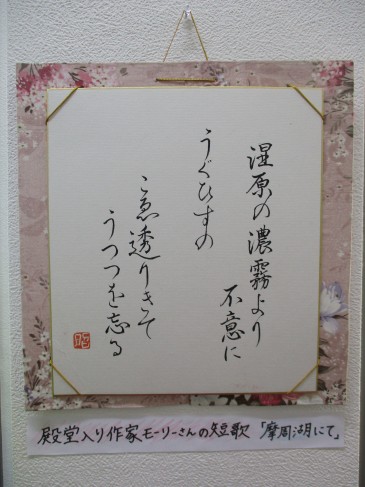 湿原の濃霧より
不意に
うぐひすの
こゑ透りきて
うつつを忘る
殿堂入り作家モーリーさんの短歌「摩周湖にて」